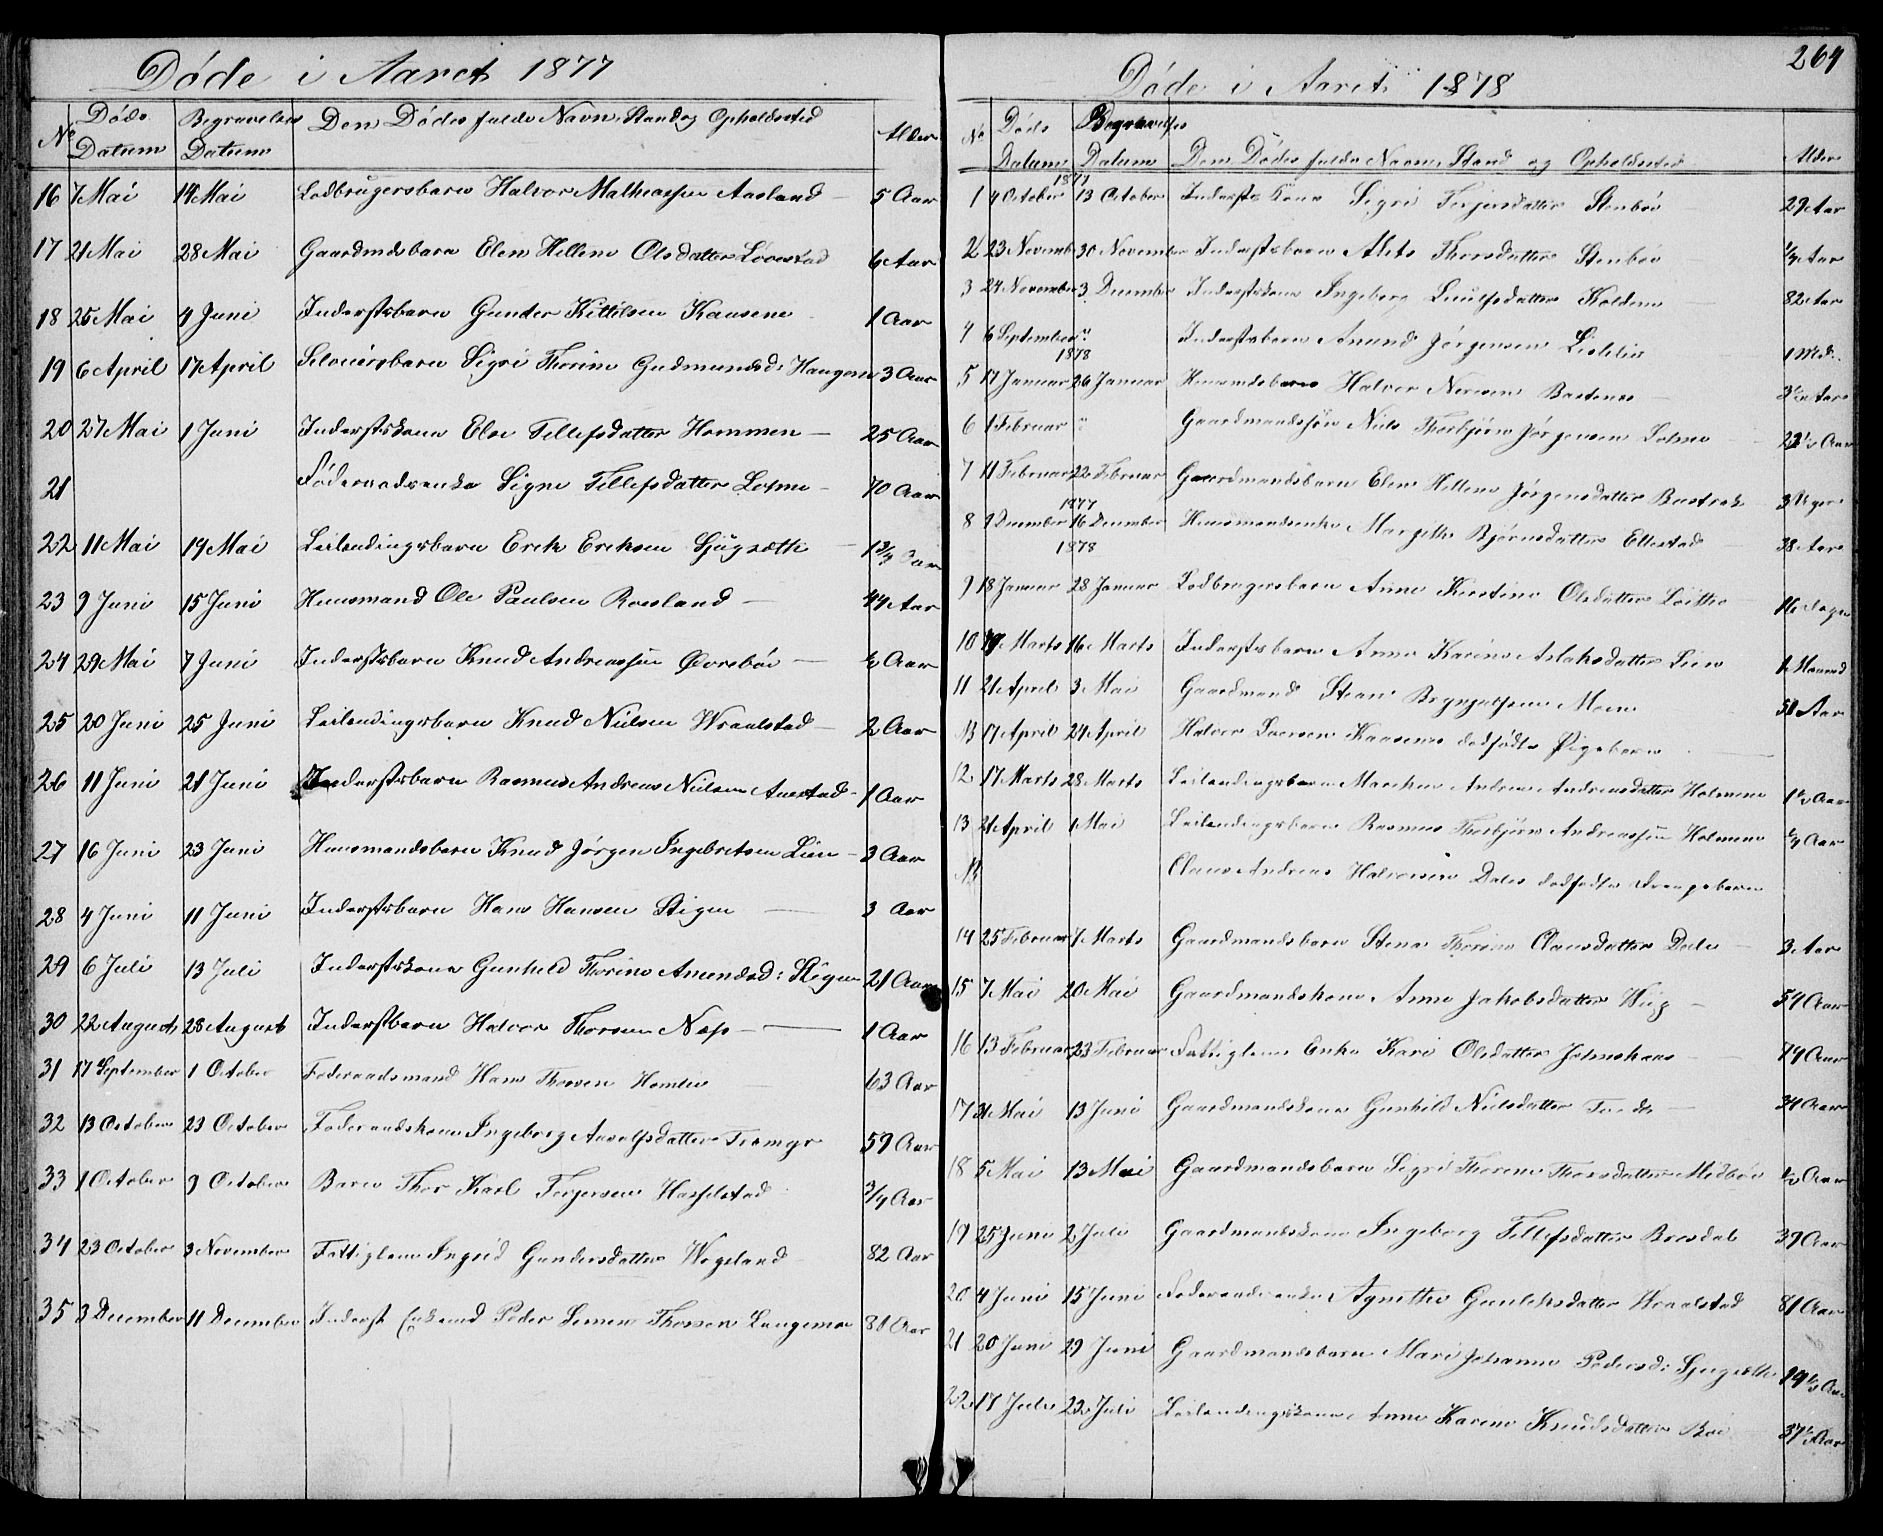 Døde i Aaret 1877
No Døds Datum Begravelses Datum Den Dødes fulde Navn, Stand og Opholdssted Alder
16 7 Mai 14 Mai Lodbrugersbarn Halvor Mathiassen Aasland 5 Aar
17 21 Mai 28 Mai Gaardmdsbarn Elen Hellene Olsdatter Lövestad 6 Aar
18 25 Mai 4 Juni Inderstsbarn Gunder Kittilsen Kausene 1 Aar
19 6 April 17 April Selveiersbarn Sigri Thorine Gudmundsd: Haugene 3 Aar
20 27 Mai 1 Juni Inderstskone Else Tellefsdatter Hommen 25 Aar
21 Föderaadsenke Signe Tellefsdatter Lofme 70 Aar
22 11 Mai 19 Mai Leilendingsbarn Erik Eriksen Sjugsætti 1 3/4 Aar
23 9 Juni 15 Juni Huusmand Ole Paulsen Rosland 44 Aar
24 29 Mai 7 Juni Inderstsbarn Knud Andreassen Øvrebøe 1/2 Aar
25 20 Juni 25 Juni Leilendingsbarn Knud Nielsen Wraalstad 2 Aar
26 11 Juni 21 Juni Inderstsbarn Rasmus Andreas Nielsen Aanstad 1 Aar
27 16 Juni 23 Juni Huusmandsbarn Knud Jörgen Ingebretsen Lien 3 Aar
28 4 Juni 11 Juni Inderstsbarn Hans Hansen Stigen 3 Aar
29 6 Juli 13 Juli Inderstskone Gunhild Thorine Amundsd: Stigen 21 Aar
30 22 August 28 August Inderstbarn Halvor Thorsen Næs 1 Aar
31 17 September 1 October Föderaadsmand Hans Thorsen Homlie 63 Aar
32 13 October 23 October Föderaadskone Ingeborg Anvolfsdatter Tramyr 59 Aar
33 1 October 9 October Barn Thor Karl Terjersen Hasselstad 3/4 Aar
34 23 October 3 November Fattiglem Ingrid Gundersdatter Wegeland 82 Aar
35 3 December 11 December Inderst Enkemd Peder Simen Thorsen Langemoe 81 Aar
264
Døde i Aaret 1878
No Døds Datum Begravelses Datum Den Dødes fulde Navn, Stand og Opholdssted Alder
1877
1 4 October 13 October Inderstskone Sigri Terjersdatter Stenbøe 29 Aar
2 23 Novemb 30 November Inderstsbarn Aslets Thorsdatter Stenbøe 1/4 Aar
3 24 November 3 December Inderstskone Ingeborg Lenulfsdatter Koldene 82 Aar
4 6 September " Inderstsbarn Anund Jörgensen Lislelie 1 Md.
1878
5 17 Januar 26 Januar Huusmdsbarn Halvor Neresen Bastenes 3 1/2 Aar
6 1 Februar " Gaardmandssøn Niels Thorbjörn Jörgensen Lofme 22 1/2 Aar
7 11 Februar 22 Februar Gaardmandsbarn Elen Hellene Jörgensdatter Bustrak 3 Uger
1877
8 9 December 16 December Huusmandsenke Margethe Bjørnsdatter Ettestad 38 Aar
1878
9 18 Januar 28 Januar Lodbrugersbarn Anne Kirstine Olsdatter Leithe 16 Dage
10 Marts 16 Marts Inderstsbarn Anne Karine Aslaksdatter Lien 1 Maaned
11 21 April 3 Mai Gaardmand Steani Brynjulfsen Moen 58 Aar
NB 17 April 24 April Halvor Loversen Kausenes dødfödte Pigebarn
12 17 Marts 28 Marts Leilendingsbarn Maren Andrea Andreasdatter Holmene 1 1/2 Aar
13 21 April 1 Mai Leilendingsbarn Rasmus Thorbjörn Andreassen Holmene 1/4 Aar
NB Claus Andreas Halvorsen Dales dødfødte Drengebarn
14 25 Februar 7 Marts Gaardmandsbarn Stena Thorine Clausdatter Dale 3 Aar
15 7 Mai 20 Mai Gaardmandskone Anne Jakobsdatter Wiig 54 Aar
16 13 Februar 23 Februar Fattiglem Enke Kari Olsdatter Johnskaas 74 Aar
17 31 Mai 13 Juni Gaardmandskone Gunhild Nielsdatter Tvedt 34 Aar
18 5 Mai 13 Mai Gaardmandsbarn Sigri Thorine Thorsdatter Midbøe 1/2 Aar
19 25 Juni 2 Juli Gaardmandskone Ingeborg Tellefsdatter Bresdal 39 Aar
20 4 Juni 15 Juni Föderaadsenke Agnethe Gunleksdatter Wraalstad 81 Aar
21 20 Juni 29 Juni Gaardmandsbarn Mari Johanne Pedersd: Sjugsætti 14 1/2 Aar
22 17 Juli 22 Juli Leilendingskone Anne Karine Knudsdatter Bøe 37 1/2 Aar